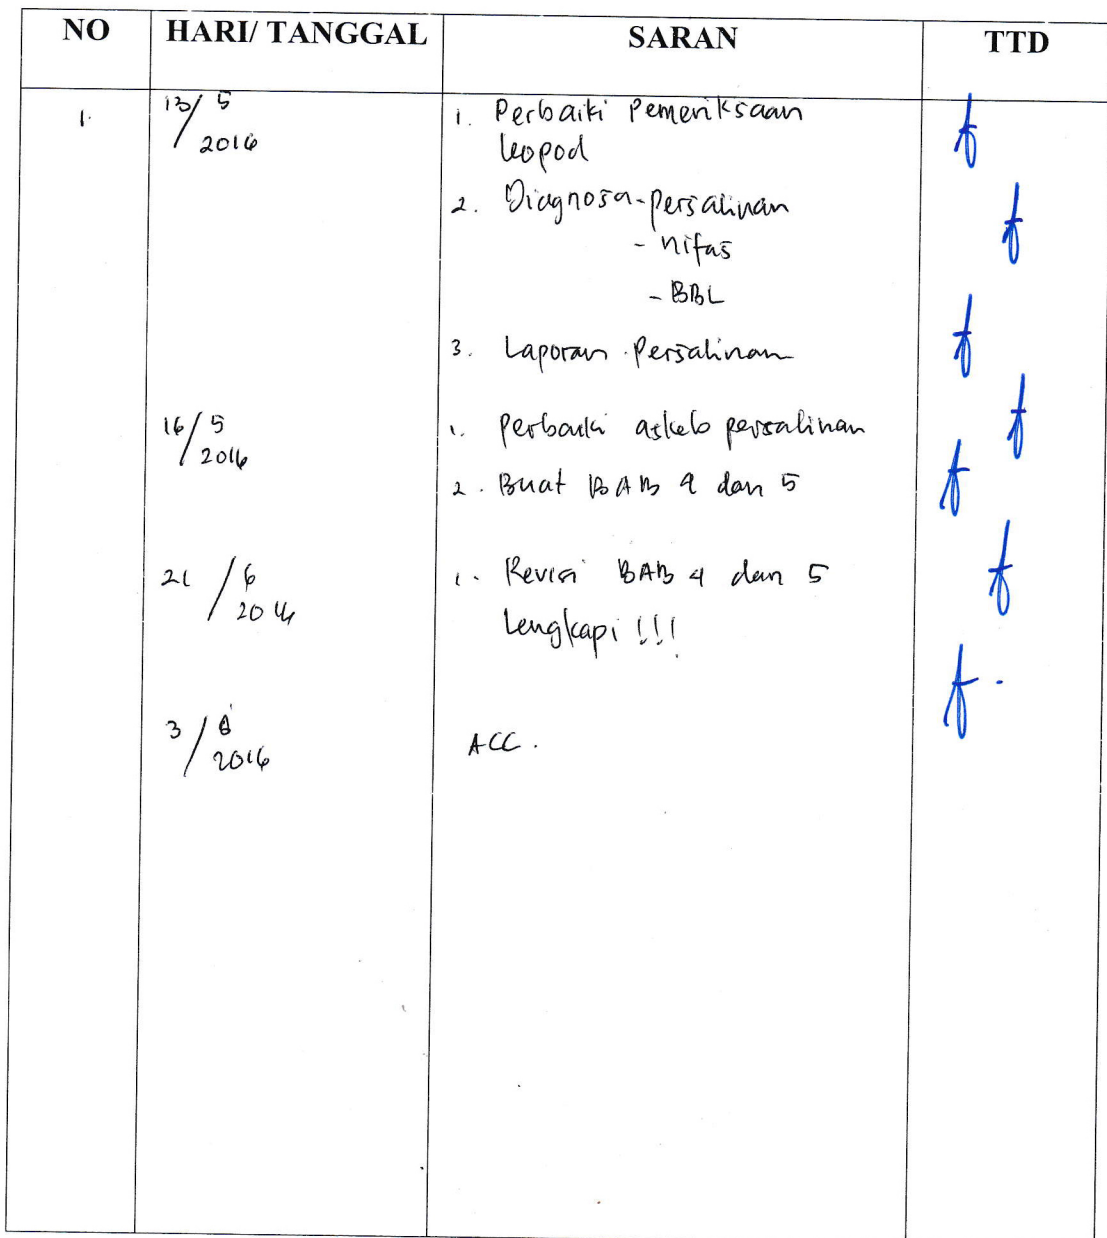 NO HARI/ TANGGAL SARAN TTD
1. 13/5 2016 1. Perbaiki Pemeriksaan
leopod
2. Diagnosa - persalinan
- nifas
- BBL
3. Laporan Persalinan
16/5 2016 1. Perbaiki askeb persalinan
2. Buat BAB 4 dan 5
21/6 2016 1. Revisi BAB 4 dan 5
Lengkapi !!!
3/ 2016 ACC.